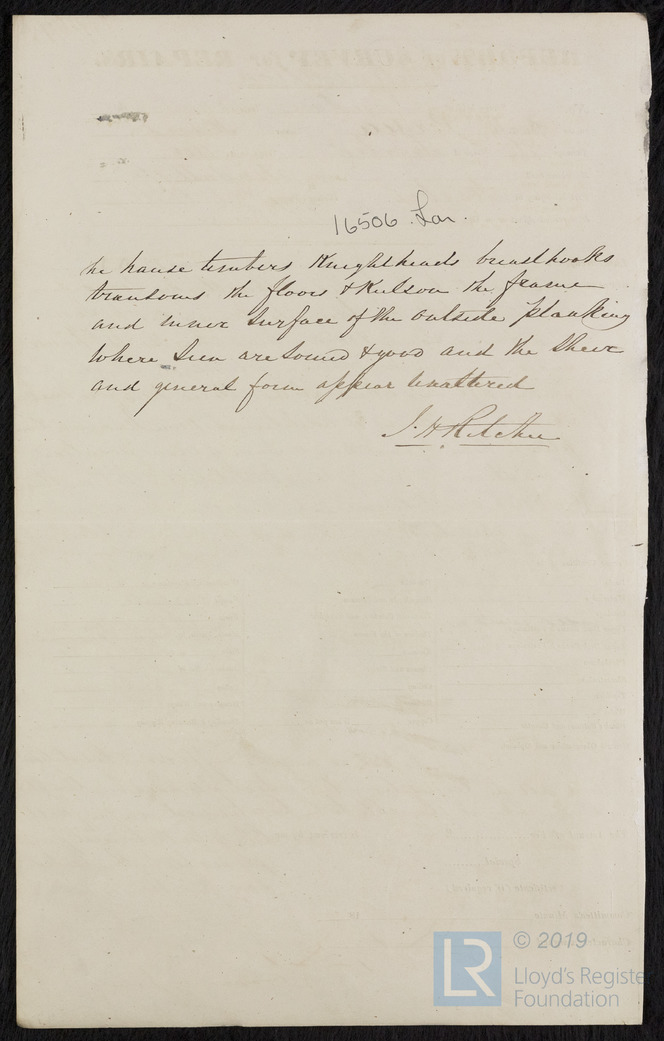 16506 Lon.
he hause timbers Knightheads breasthooks
transoms the floors & Kelson the frame
and inner surface of the outside planking
where seen are sound & good and the sheer
and general form appear unaltered
J. H Ritchie
© 2019
LR
Lloyd's Registe
Foundation